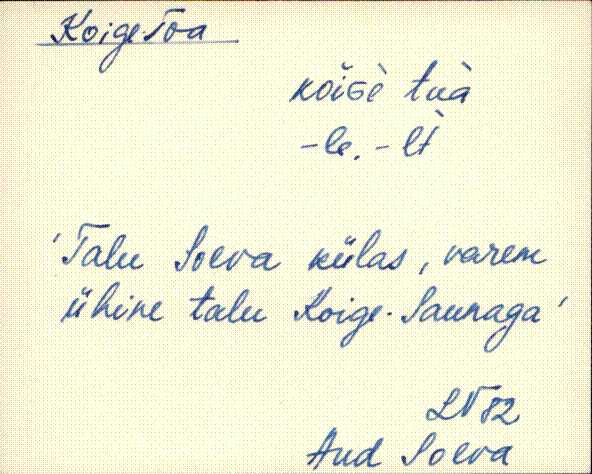 Koige-Toa
koiɢè tuà
-le, -lt
'Talu Soeva külas, varem
ühine talu Koige-Saunaga'
LV 82
Aud Soeva